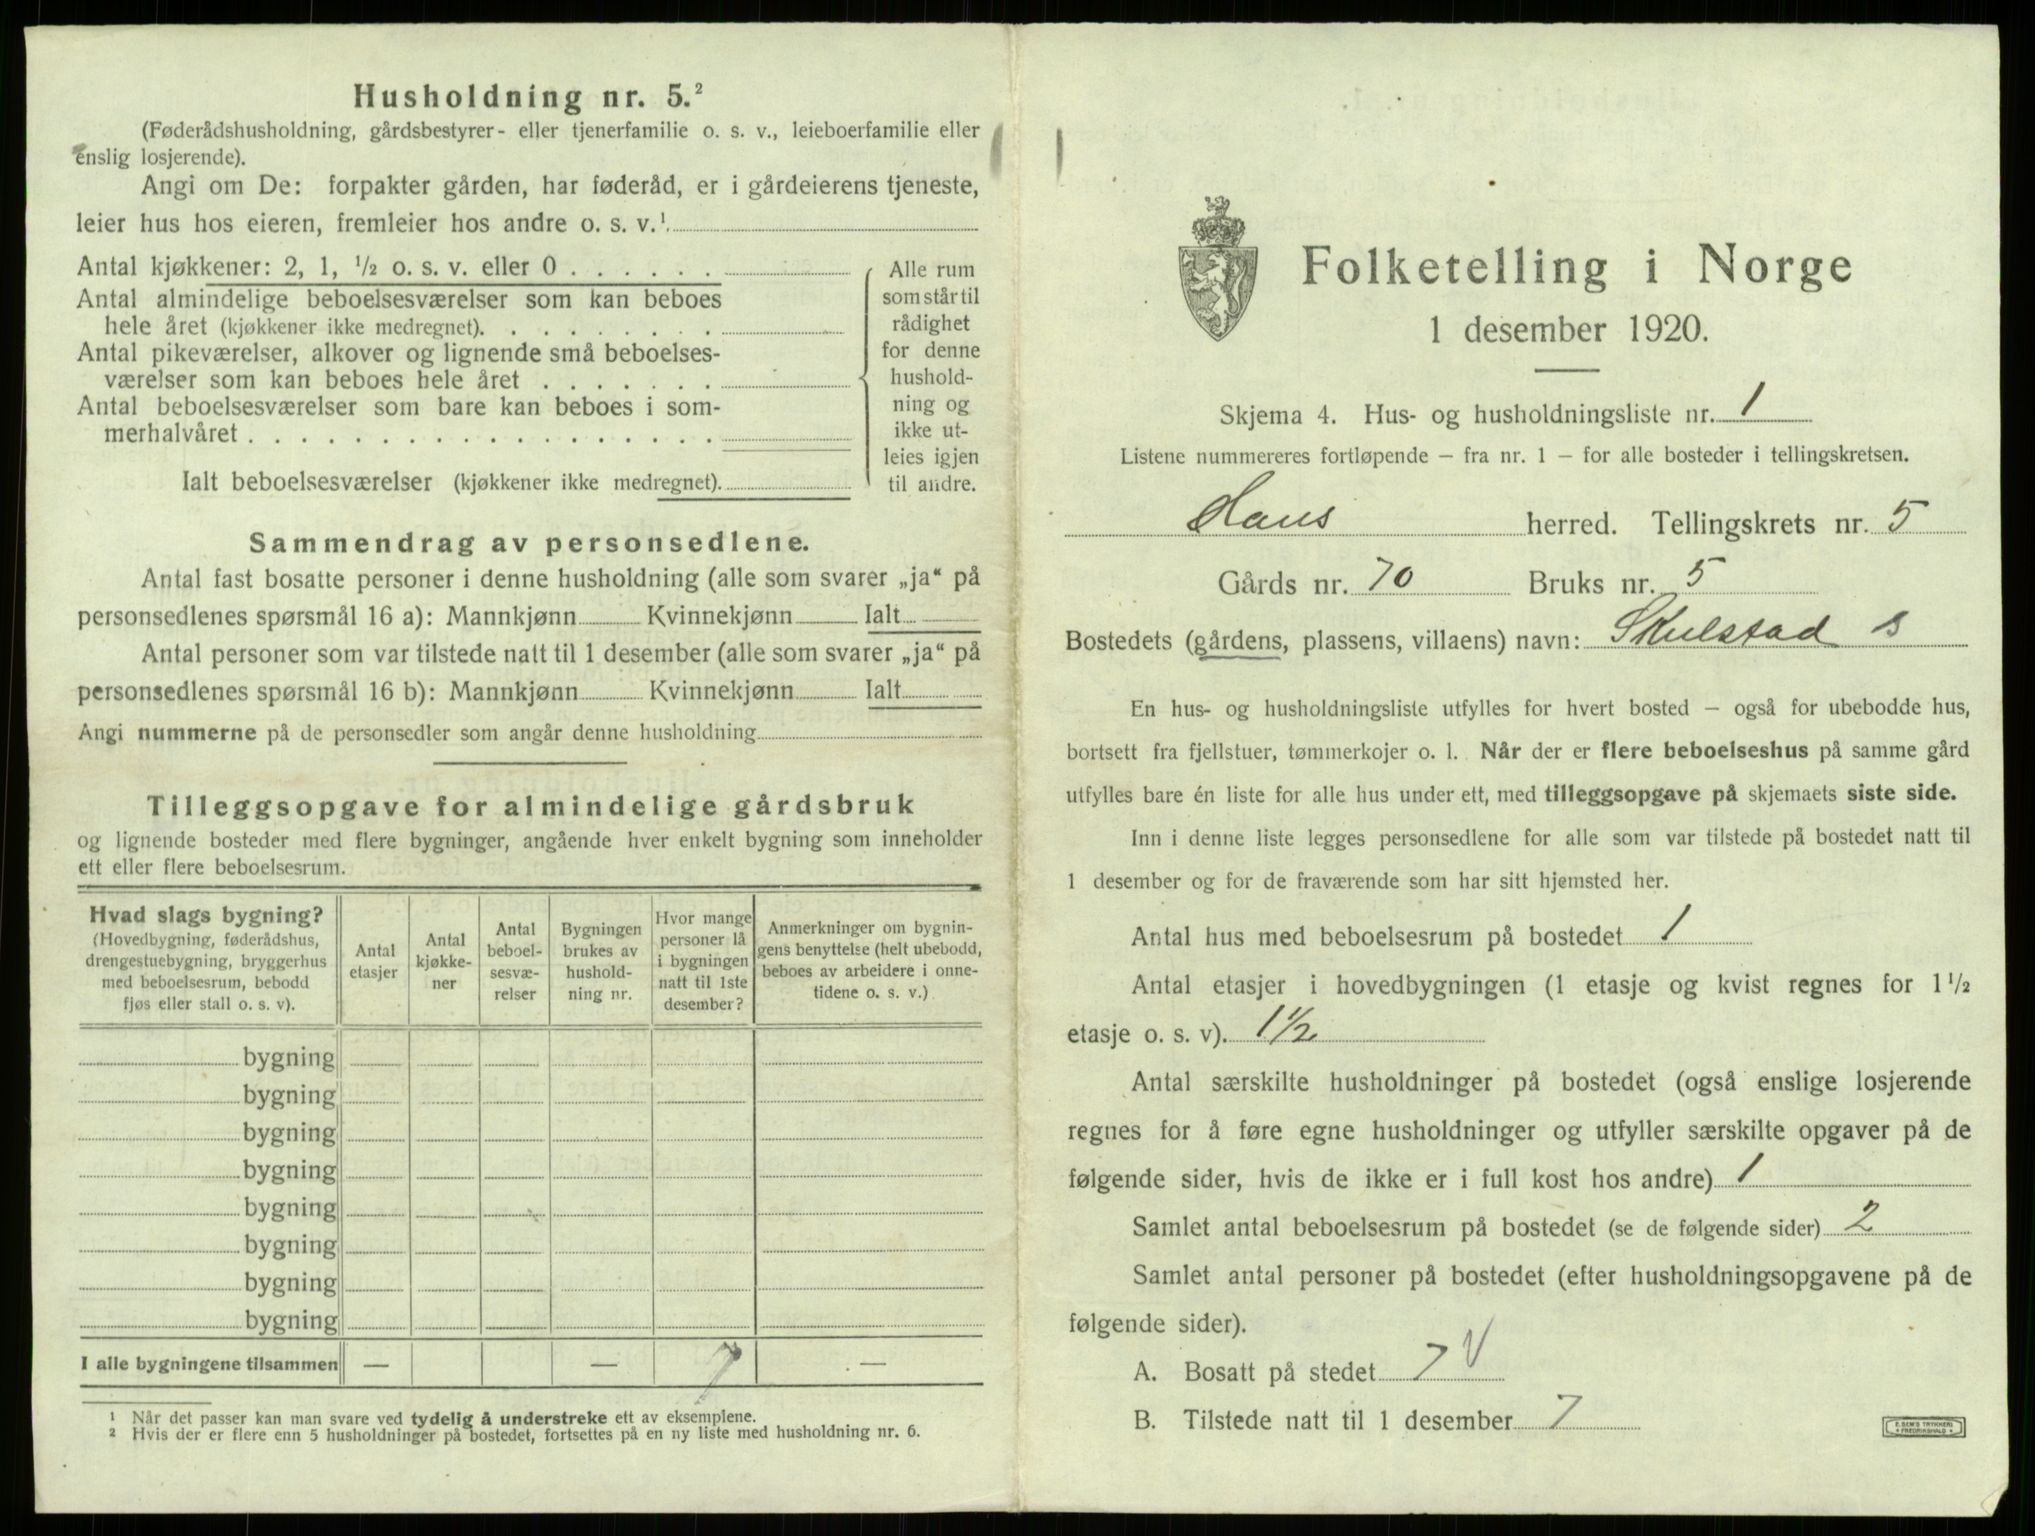 Husholdning nr. 5.²
(Føderådshusholdning, gårdsbestyrer- eller tjenerfamilie o. s. v., leieboerfamilie eller
enslig losjerende).
Angi om De: forpakter gården, har føderåd, er i gårdeierens tjeneste,
leier hus hos eieren, fremleier hos andre o. s. v.¹
Antal kjøkkener: 2, 1, ½ o. s. v. eller 0 . . . . . .
Antal almindelige beboelsesværelser som kan beboes
hele året (kjøkkener ikke medregnet). . . . . . . . .
Antal pikeværelser, alkover og lignende små beboelses-
værelser som kan beboes hele året . . . . . . .
Antal beboelsesværelser som bare kan beboes i som-
merhalvåret . . . . . . . . . . . . . . . . . .
Ialt beboelsesværelser (kjøkkener ikke medregnet).
Alle rum
som står til
rådighet
for denne
hushold-
ning og
ikke ut-
leies igjen
til andre.
Sammendrag av personsedlene.
Antal fast bosatte personer i denne husholdning (alle som svarer „ja“ på
personsedlenes spørsmål 16 a): Mannkjønn Kvinnekjønn Ialt
Antal personer som var tilstede natt til 1 desember (alle som svarer „ja“ på
personsedlenes spørsmål 16 b): Mannkjønn Kvinnekjønn Ialt
Angi nummerne på de personsedler som angår denne husholdning
Tilleggsopgave for almindelige gårdsbruk
og lignende bosteder med flere bygninger, angående hver enkelt bygning som inneholder
ett eller flere beboelsesrum.
Hvad slags bygning?
(Hovedbygning, føderådshus,
drengestuebygning, bryggerhus
med beboelsesrum, bebodd
fjøs eller stall o. s. v).
Antal
etasjer
Antal
kjøkke-
ner
Antal
beboel-
sesvæ-
relser
Bygningen
brukes av
hushold-
ning nr.
Hvor mange
personer lå
i bygningen
natt til 1ste
desember?
Anmerkninger om bygnin-
gens benyttelse (helt ubebodd,
beboes av arbeidere i onne-
tidene o. s. v.)
bygning
bygning
bygning
bygning
bygning
bygning
bygning
bygning
I alle bygningene tilsammen — — 7 —
¹ Når det passer kan man svare ved tydelig å understreke ett av eksemplene.
² Hvis der er flere enn 5 husholdninger på bostedet, fortsettes på en ny liste med husholdning nr. 6.
Folketelling i Norge
1 desember 1920.
Skjema 4. Hus- og husholdningsliste nr. 1
Listene nummereres fortløpende – fra nr. 1 – for alle bosteder i tellingskretsen.
Haus herred. Tellingskrets nr. 5
Gårds nr. 70 Bruks nr. 5
Bostedets (gårdens, plassens, villaens) navn: Skulstad s
En hus- og husholdningsliste utfylles for hvert bosted – også for ubebodde hus,
bortsett fra fjellstuer, tømmerkojer o. l. Når der er flere beboelseshus på samme gård
utfylles bare én liste for alle hus under ett, med tilleggsopgave på skjemaets siste side.
Inn i denne liste legges personsedlene for alle som var tilstede på bostedet natt til
1 desember og for de fraværende som har sitt hjemsted her.
Antal hus med beboelsesrum på bostedet 1
Antal etasjer i hovedbygningen (1 etasje og kvist regnes for 1½
etasje o. s. v). 1½
Antal særskilte husholdninger på bostedet (også enslige losjerende
regnes for å føre egne husholdninger og utfyller særskilte opgaver på de
følgende sider, hvis de ikke er i full kost hos andre) 1
Samlet antal beboelsesrum på bostedet (se de følgende sider) 2
Samlet antal personer på bostedet (efter husholdningsopgavene på de
følgende sider).
A. Bosatt på stedet 7 V
B. Tilstede natt til 1 desember 7
E. SEM'S TRYKKERI
FREDRIKSHALD